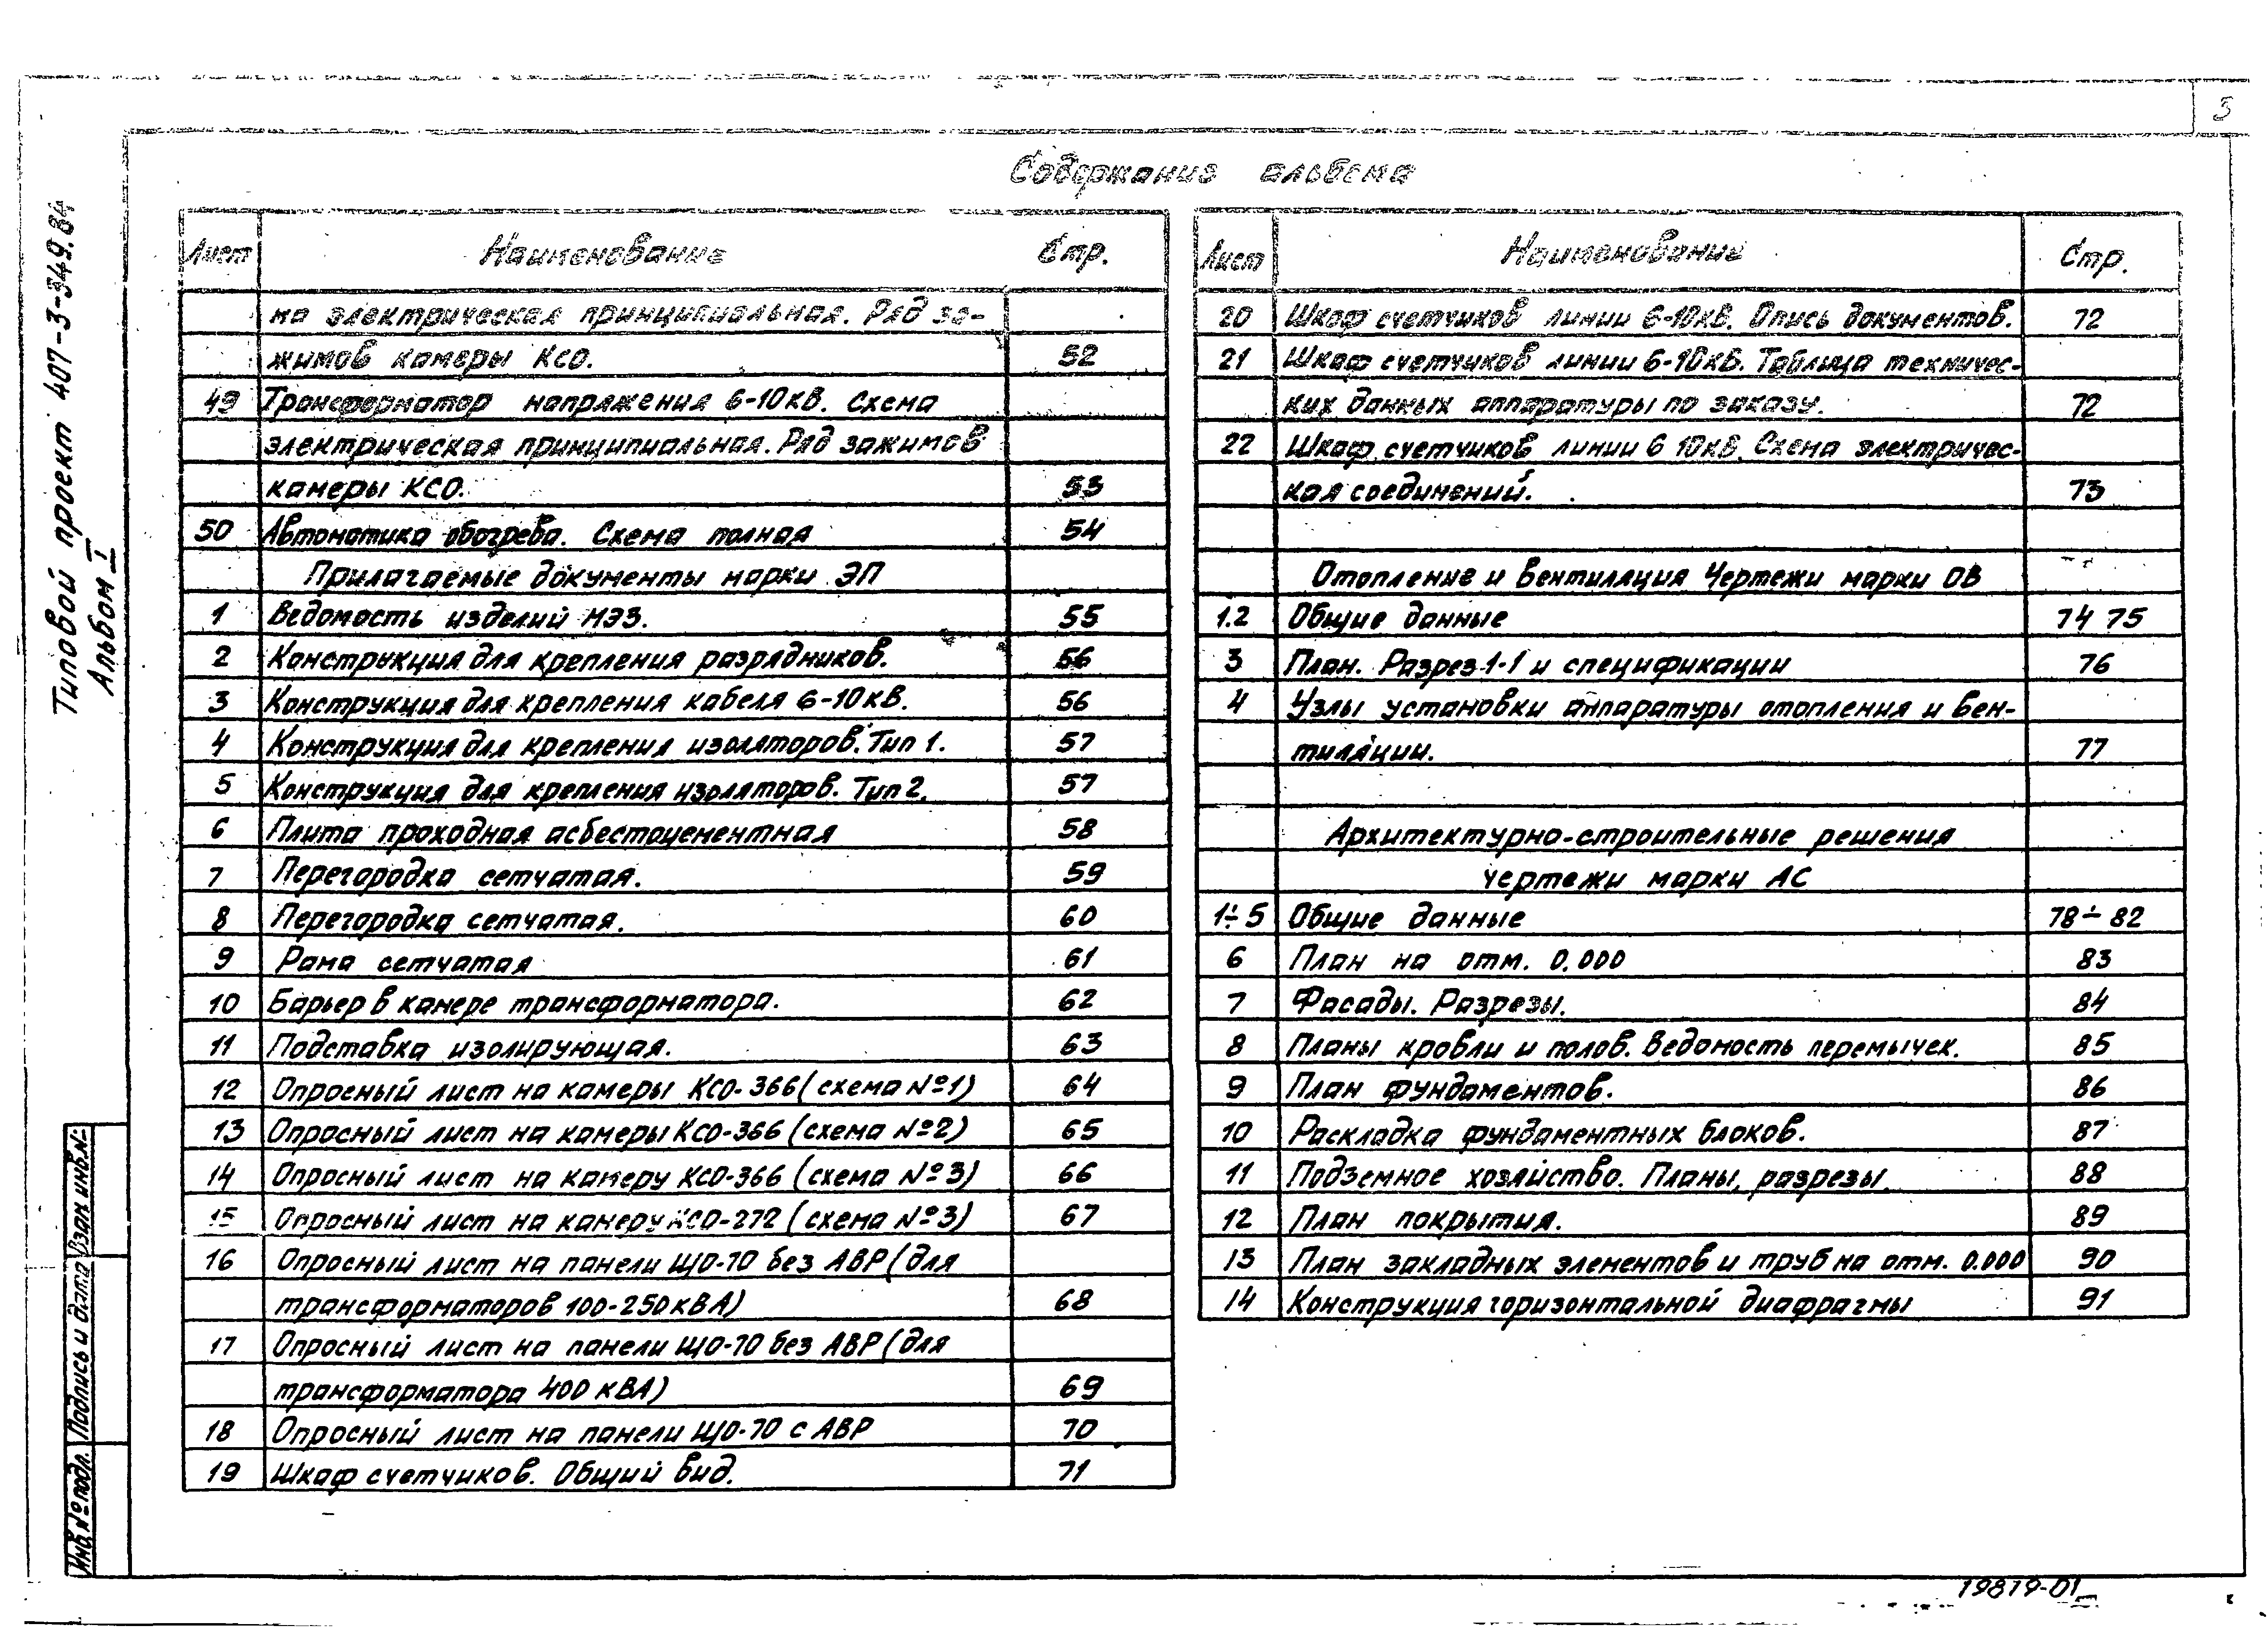 3
Содержание альбома
Типовой проект 407-3-349.84
Альбом I
Лист Наименование Стр.
ма электрическая принципиальная. Ряд за-
жимов камеры КСО. 52
49 Трансформатор напряжения 6-10кВ. Схема
электрическая принципиальная. Ряд зажимов
камеры КСО. 53
50 Автоматика обогрева. Схема полная 54
Прилагаемые документы марки ЭП
1 Ведомость изделий МЭЗ. 55
2 Конструкция для крепления разрядников. 56
3 Конструкция для крепления кабеля 6-10кВ. 56
4 Конструкция для крепления изоляторов. Тип 1. 57
5 Конструкция для крепления изоляторов. Тип 2. 57
6 Плита проходная асбестоцементная 58
7 Перегородка сетчатая. 59
8 Перегородка сетчатая. 60
9 Рама сетчатая 61
10 Барьер в камере трансформатора. 62
11 Подставка изолирующая. 63
12 Опросный лист на камеры КСО-366 (схема №1) 64
13 Опросный лист на камеры КСО-366 (схема №2) 65
14 Опросный лист на камеру КСО-366 (схема №3) 66
15 Опросный лист на камеру КСО-272 (схема №3) 67
16 Опросный лист на панели ЩО-70 без АВР (для
трансформаторов 100-250кВА) 68
17 Опросный лист на панели ЩО-70 без АВР (для
трансформатора 400 кВА) 69
18 Опросный лист на панели ЩО-70 с АВР 70
19 Шкаф счетчиков. Общий вид. 71
Лист Наименование Стр.
20 Шкаф счетчиков линии 6-10кВ. Опись документов. 72
21 Шкаф счетчиков линии 6-10кВ. Таблица техничес-
ких данных аппаратуры по заказу. 72
22 Шкаф счетчиков линии 6 10кВ. Схема электричес-
кая соединений. 73
Отопление и вентиляция Чертежи марки ОВ
1.2 Общие данные 74 75
3 План. Разрез 1-1 и спецификации 76
4 Узлы установки аппаратуры отопления и вен-
тиляции. 77
Архитектурно-строительные решения
чертежи марки АС
1÷5 Общие данные 78÷82
6 План на отм. 0.000 83
7 Фасады. Разрезы. 84
8 Планы кровли и полов. Ведомость перемычек. 85
9 План фундаментов. 86
10 Раскладка фундаментных блоков. 87
11 Подземное хозяйство. Планы, разрезы. 88
12 План покрытия. 89
13 План закладных элементов и труб на отм. 0.000 90
14 Конструкция горизонтальной диафрагмы 91
Взам инв.№
Подпись и дата
Инв.№ подл.
19819-01